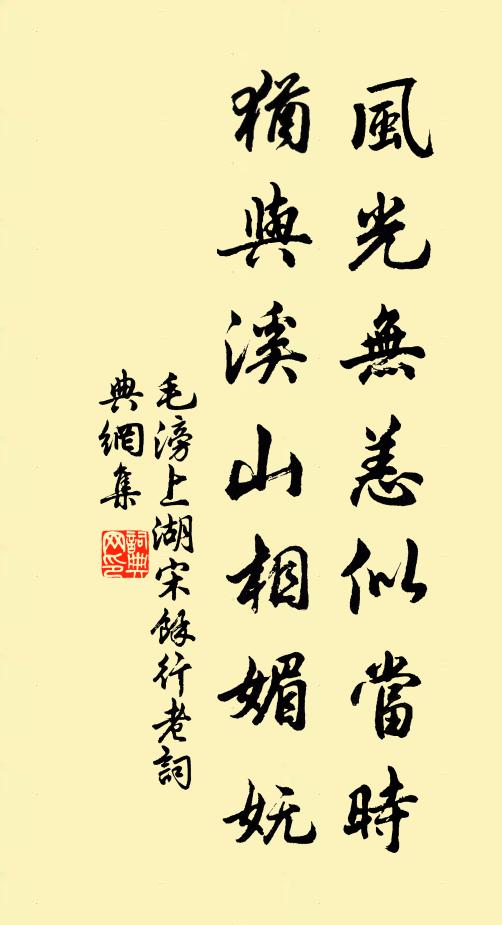 風光無恙似當時
猶與溪山相媚妩
毛滂上湖宋餘行老詞
典網集
詞典
网印